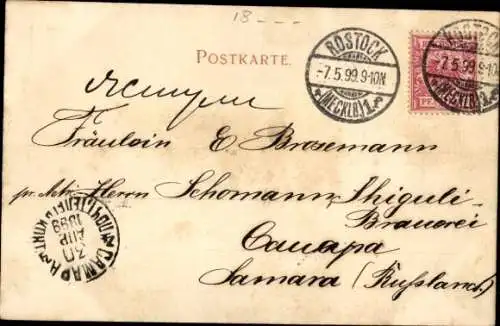 18 - - -
POSTKARTE.
ROSTOCK
-7.5.99.9-10N
(MECKLB)1
ROSTOCK
-7.5.99.9-10N
(MECKLB)1
Fräulein E Brozemann
pr. Adr. Herrn Schomann Shiguli-
Brauerei
Самара
Samara (Russland.)
САМАРА
30
АПР
1899